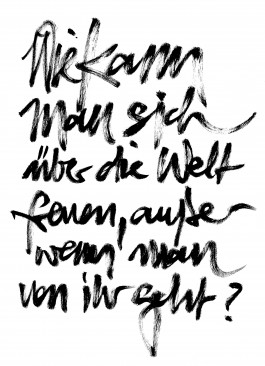 Wie kann
man sich
über die Welt
freuen, außer
wenn man
von ihr geht?